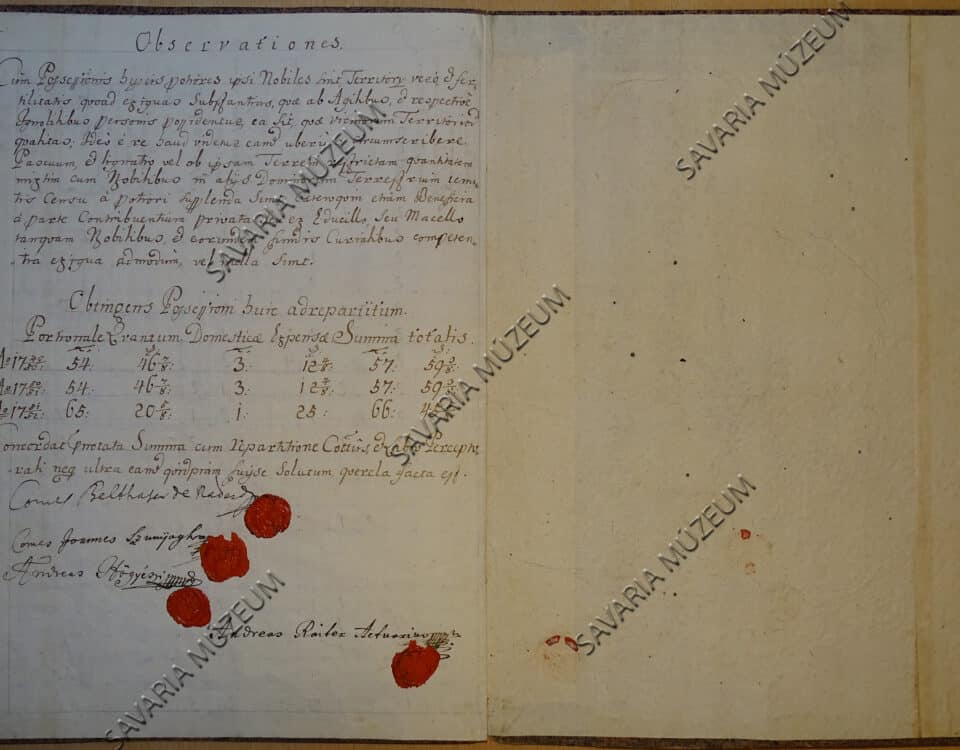 Observationes.
Cum Possessionis hujus potiores ipsi Nobiles sint Territory verò, et fer-
tilitatis quoad exiguas Substantias, quae ab Agilibus, et respectivè
Ignobilibus personis possidentur, ea sit, quae vicinorum Territoriorum
qualitas; Ideo è re haud videtur eand uberius circumscribere.
Pascuum, et lignatio vel ob ipsam Terreni restrictam quantitatem
mixtim cum Nobilibus in alijs Dominorum Terrestrium
Censu à potiori supplenda sint, caeteroquin etiam Beneficia
à parte Contribuentium privata ex Educillo, seu Macello
tanquam Nobilibus, et eorundem fundis Curialibus competen-
tia exigua admodum, vel nulla sint.
Obtingens Possessioni huic adrepartitum.
Portionale Quantum Domesticae Expensae Summa totalis.
54: 46 7/8: 3: 12 57: 59
54: 46 7/8: 3: 12 57: 59
65: 20 1: 25: 66:
Concordat Summa cum Repartitione Percepto-
rali neq ultra eand quidpiam fuisse solutum querela facta est.
Comes Belthasar de
Comes Joannes
Andreas Högyészi
Andreas Raiter Actuarius
SAVARIA MÚZEUM
SAVARIA MÚZEUM
SAVARIA MÚZEUM
SAVARIA MÚZEUM
SAVARIA MÚZEUM